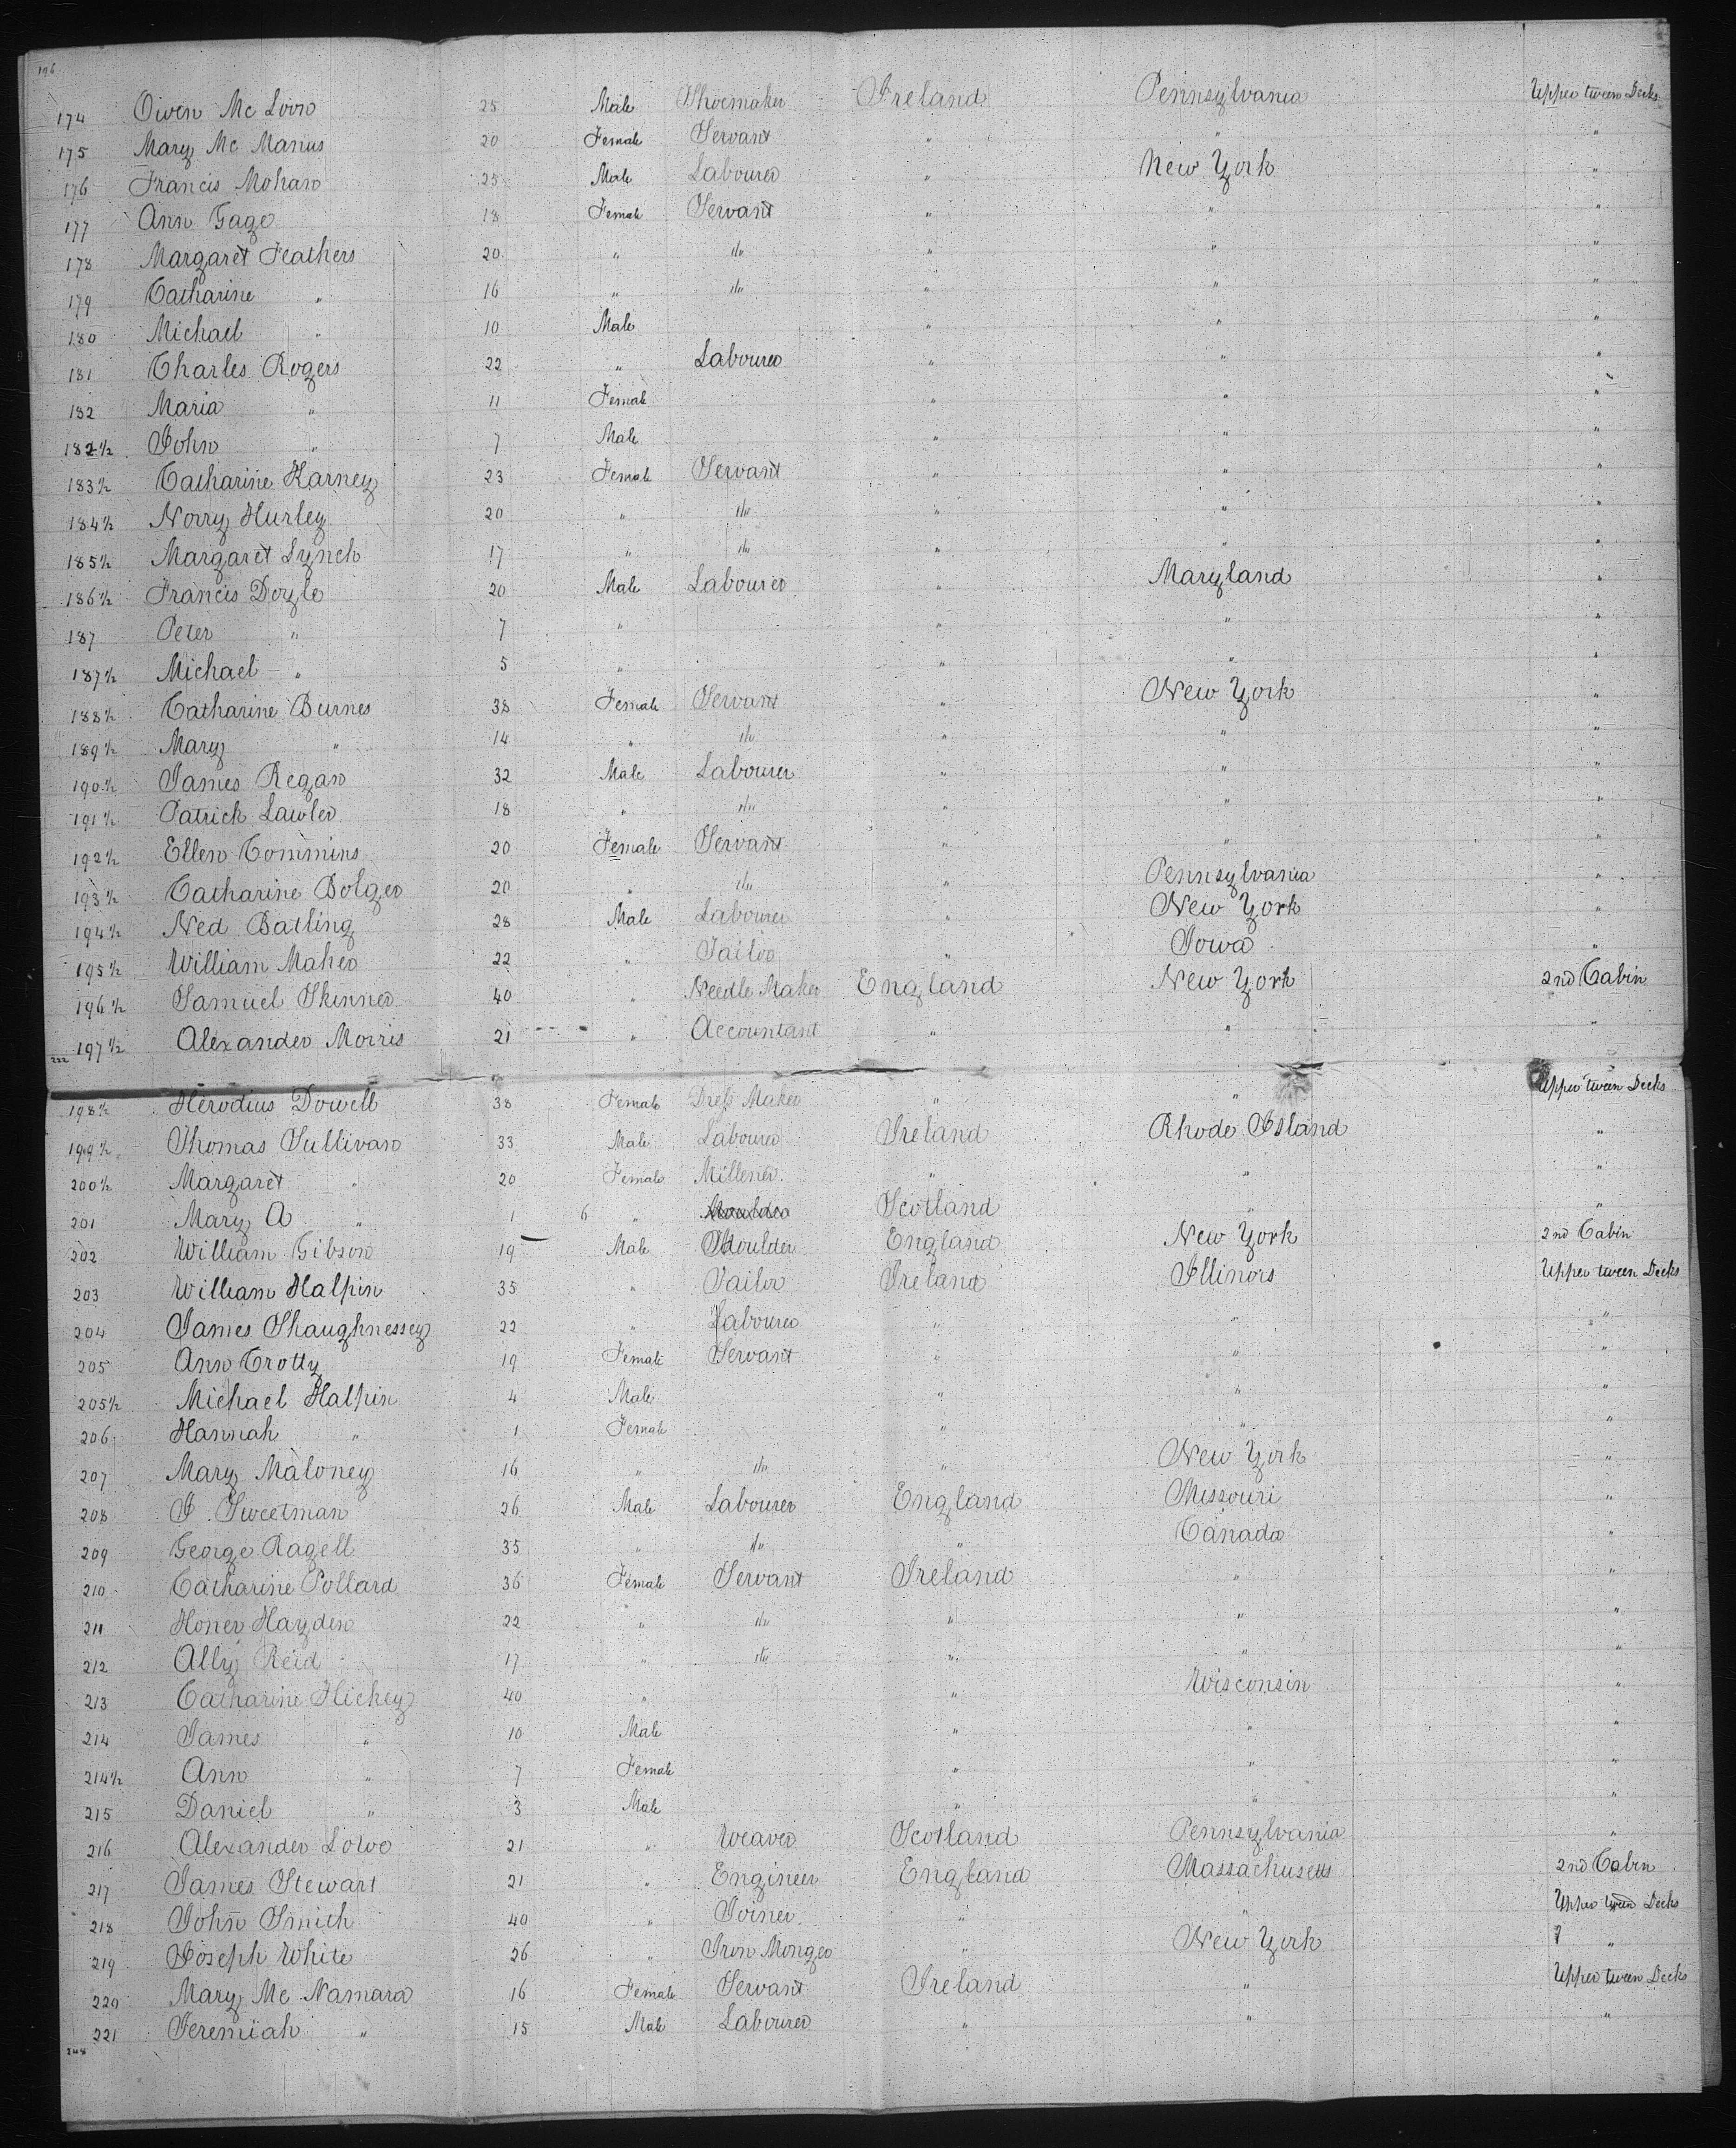 196
174 Owen Mc Loon 25 Male Shoemaker Ireland Pennsylvania Upper tween Decks
175 Mary Mc Manus 20 Female Servant " " "
176 Francis Mohan 25 Male Labourer " New York "
177 Ann Gage 18 Female Servant " " "
178 Margaret Feathers 20 " do " " "
179 Catharine " 16 " do " " "
180 Michael " 10 Male " " "
181 Charles Rogers 22 " Labourer " " "
182 Maria " 11 Female " " "
182½ John " 7 Male " " "
183½ Catharine Karney 23 Female Servant " " "
184½ Norry Hurley 20 " do " " "
185½ Margaret Lynch 17 " do " " "
186½ Francis Doyle 20 Male Labourer " Maryland "
187 Peter " 7 " " " "
187½ Michael " 5 " " " "
188½ Catharine Burnes 38 Female Servant " New York "
189½ Mary " 14 " do " " "
190½ James Regan 32 Male Labourer " " "
191½ Patrick Lawler 18 " do " " "
192½ Ellen Commins 20 Female Servant " " "
193½ Catharine Bolger 20 " do " Pennsylvania "
194½ Ned Batling 28 Male Labourer " New York "
195½ William Maher 22 " Tailor " Iowa "
196½ Samuel Skinner 40 " Needle Maker England New York 2nd Cabin
197½ Alexander Morris 21 " Accountant " " "
222
198½ Herodius Dowell 38 Female Dress Maker " " Upper tween Decks
199½ Thomas Sullivan 33 Male Labourer Ireland Rhode Island "
200½ Margaret " 20 Female Millener " " "
201 Mary A " 1 6 " Moulder Scotland " "
202 William Gibson 19 Male Moulder England New York 2nd Cabin
203 William Halpin 35 " Tailor Ireland Illinois Upper tween Decks
204 James Shaughnessey 22 " Labourer " " "
205 Ann Crotty 19 Female Servant " " "
205½ Michael Halpin 4 Male " " "
206 Hannah " 1 Female " " "
207 Mary Maloney 16 " do " New York "
208 J. Sweetman 26 Male Labourer England Missouri "
209 George Ragell 35 " do " Canada "
210 Catharine Pollard 36 Female Servant Ireland " "
211 Honer Hayden 22 " do " " "
212 Ally Reid 17 " do " " "
213 Catharine Hickey 40 " " Wisconsin "
214 James " 10 Male " " "
214½ Ann " 7 Female " " "
215 Daniel " 3 Male " " "
216 Alexander Lowe 21 " Weaver Scotland Pennsylvania "
217 James Stewart 21 " Engineer England Massachusetts 2nd Cabin
218 John Smith 40 " Joiner " " Upper tween Decks
219 Joseph White 26 " Iron Monger " New York "
220 Mary Mc Namara 16 Female Servant Ireland " Upper tween Decks
221 Jeremiah " 15 Male Labourer " " "
248